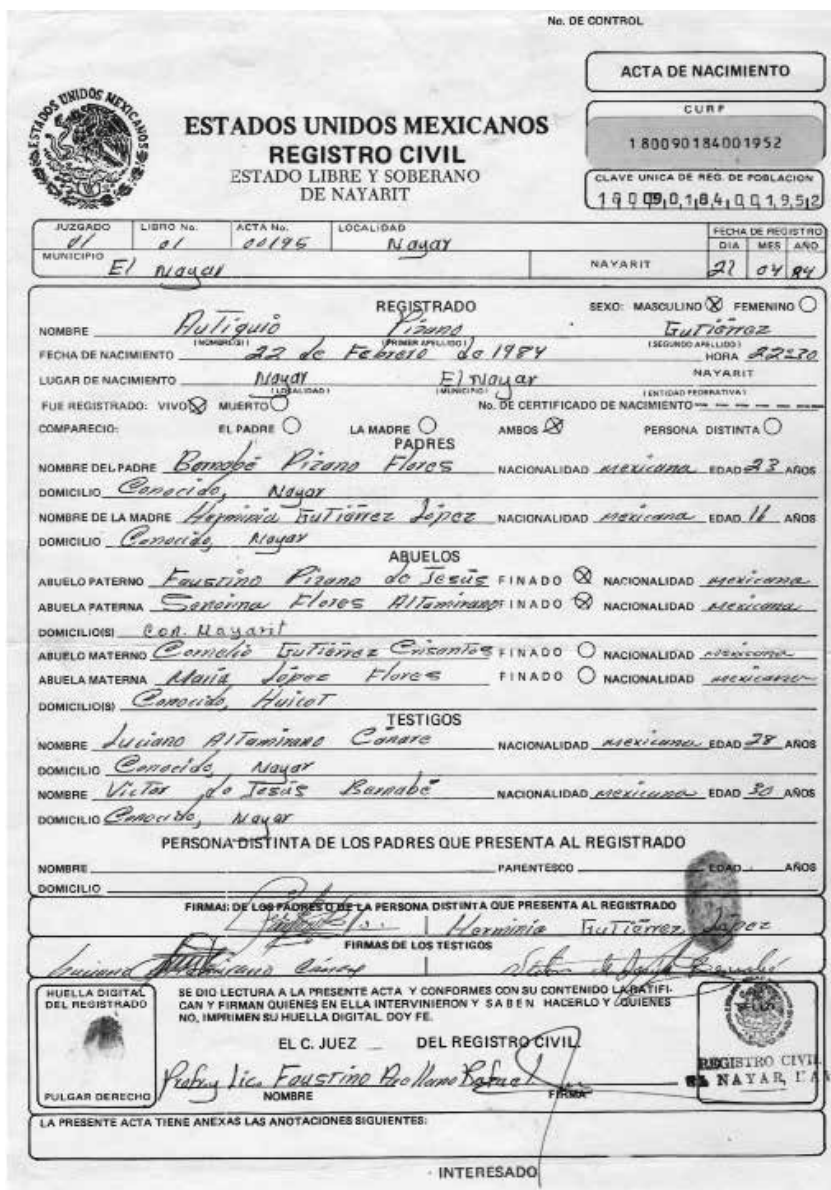 No. DE CONTROL
ACTA DE NACIMIENTO
ESTADOS UNIDOS MEXICANOS
CURP
180090184001952
ESTADOS UNIDOS MEXICANOS
REGISTRO CIVIL
ESTADO LIBRE Y SOBERANO
DE NAYARIT
CLAVE UNICA DE REG. DE POBLACION
JUZGADO LIBRO No. ACTA No. LOCALIDAD FECHA DE REGISTRO
01 01 00195 Nayar DIA MES AÑO
MUNICIPIO El Nayar NAYARIT 04 84
REGISTRADO SEXO: MASCULINO FEMENINO
NOMBRE Autiquio Pizano Gutiérrez
(NOMBRE(S)) (PRIMER APELLIDO) (SEGUNDO APELLIDO)
FECHA DE NACIMIENTO 22 de Febrero de 1984 HORA 22:30
LUGAR DE NACIMIENTO Nayar El Nayar NAYARIT
(LOCALIDAD) (MUNICIPIO) (ENTIDAD FEDERATIVA)
FUE REGISTRADO: VIVO MUERTO No. DE CERTIFICADO DE NACIMIENTO
COMPARECIO: EL PADRE LA MADRE AMBOS PERSONA DISTINTA
PADRES
NOMBRE DEL PADRE Bernabé Pizano Flores NACIONALIDAD mexicana EDAD 23 AÑOS
DOMICILIO Conocido, Nayar
NOMBRE DE LA MADRE Herminia Gutiérrez López NACIONALIDAD mexicana EDAD 16 AÑOS
DOMICILIO Conocido, Nayar
ABUELOS
ABUELO PATERNO Faustino Pizano de Jesús FINADO NACIONALIDAD mexicana
ABUELA PATERNA Flores Altamirano FINADO NACIONALIDAD mexicana
DOMICILIO(S) Con. Nayarit
ABUELO MATERNO Cornelio Gutiérrez Crisantos FINADO NACIONALIDAD mexicana
ABUELA MATERNA María López Flores FINADO NACIONALIDAD mexicana
DOMICILIO(S) Conocido, Huicot
TESTIGOS
NOMBRE Luciano Altamirano Cánare NACIONALIDAD mexicana EDAD 28 AÑOS
DOMICILIO Conocido, Nayar
NOMBRE Víctor de Jesús Bernabé NACIONALIDAD mexicana EDAD 30 AÑOS
DOMICILIO Conocido, Nayar
PERSONA DISTINTA DE LOS PADRES QUE PRESENTA AL REGISTRADO
NOMBRE PARENTESCO EDAD AÑOS
DOMICILIO
FIRMAS DE LOS PADRES O DE LA PERSONA DISTINTA QUE PRESENTA AL REGISTRADO
Herminia Gutiérrez López
FIRMAS DE LOS TESTIGOS
Luciano Altamirano
HUELLA DIGITAL
DEL REGISTRADO
PULGAR DERECHO
SE DIO LECTURA A LA PRESENTE ACTA Y CONFORMES CON SU CONTENIDO LA RATIFI-
CAN Y FIRMAN QUIENES EN ELLA INTERVINIERON Y SABEN HACERLO Y QUIENES
NO, IMPRIMEN SU HUELLA DIGITAL. DOY FE.
EL C. JUEZ DEL REGISTRO CIVIL.
Lic. Faustino Arellano Rafael
NOMBRE FIRMA
REGISTRO CIVIL
EL NAYAR,
LA PRESENTE ACTA TIENE ANEXAS LAS ANOTACIONES SIGUIENTES:
INTERESADO